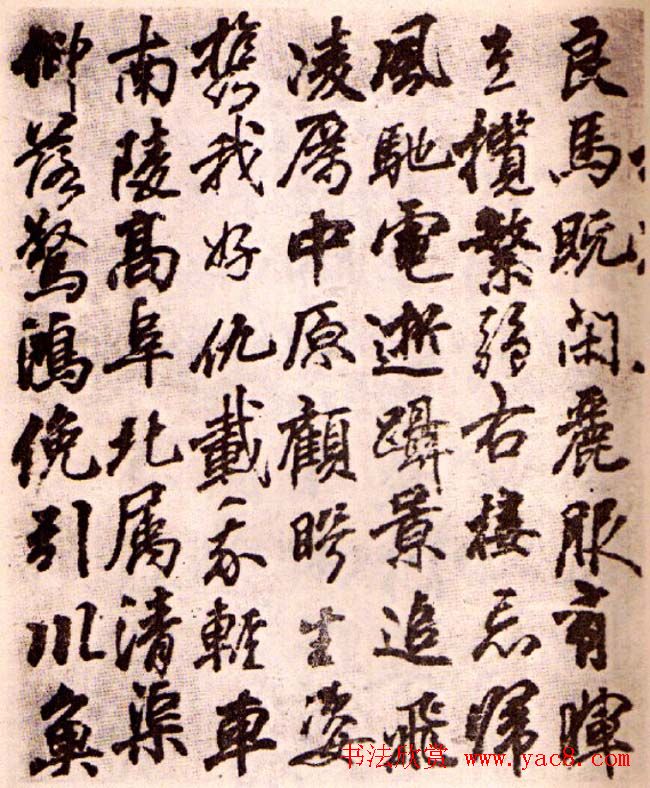 良馬既閑麗服有暉
左攬繁弱右接忘歸
風馳電逝躡景追飛
凌厲中原顧盻生姿
携我好仇載我輕車
南陵高阜北属清渠
仰落驚鴻俛引川魚
书法欣赏 www.yac8.com